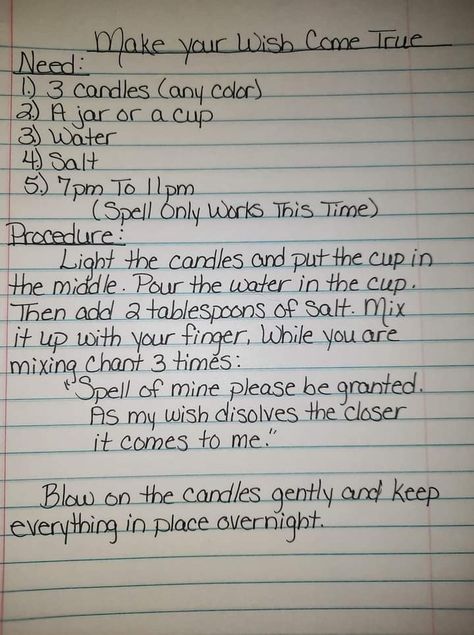 Make your Wish Come True
Need:
1.) 3 candles (any color)
2.) A jar or a cup
3.) Water
4.) Salt
5.) 7pm To 11pm
(Spell Only Works This Time)
Procedure:
Light the candles and put the cup in
the middle. Pour the water in the cup.
Then add 2 tablespoons of Salt. Mix
it up with your finger. While you are
mixing Chant 3 times:
"Spell of mine please be granted.
As my wish disolves the closer
it comes to me."
Blow on the candles gently and keep
everything in place overnight.